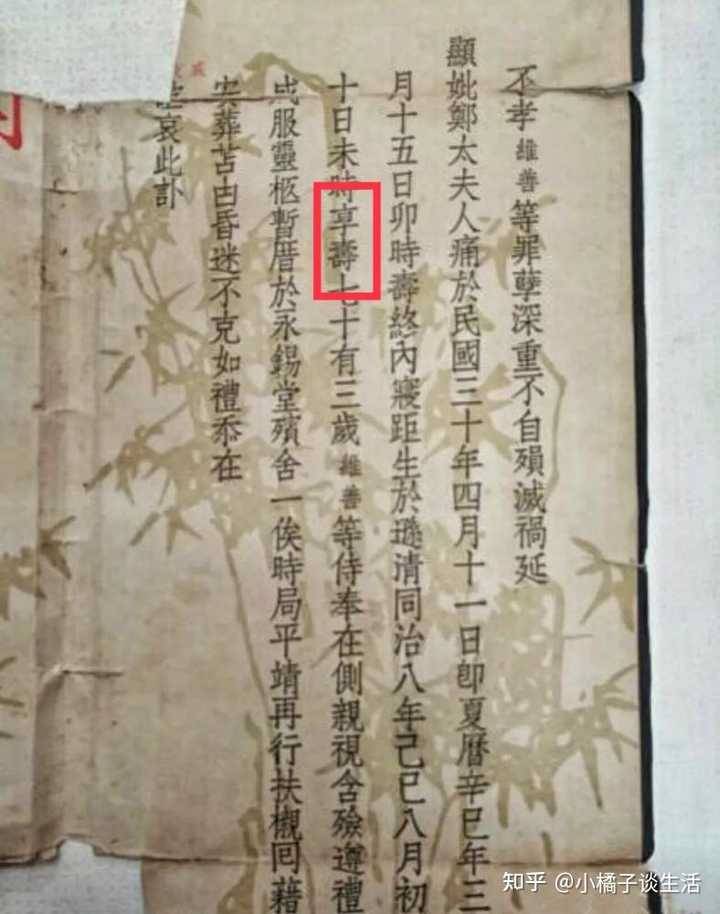 不孝維善等罪孽深重不自殞滅禍延
顯妣鄭太夫人痛於民國三十年四月十一日卽夏曆辛巳年三
月十五日卯時壽終內寢距生於遜清同治八年己巳八月初
十日未時享壽七十有三歲維善等侍奉在側親視含殮遵禮
成服靈柩暫厝於永錫堂殯舍一俟時局平靖再行扶櫬囘藉
安葬苫凷昏迷不克如禮忝在
哀此訃
知乎 @小橘子谈生活